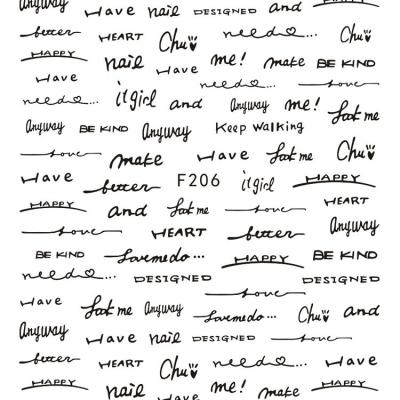 Anyway Have nail DESIGNED and HAPPY
better HEART Chu need...
HAPPY nail Have me! make BE KIND
Have need... love
need... it girl and Anyway me! look me
Anyway BE KIND Anyway Keep walking
love make Have look me Chu
Have better F206 it girl HAPPY
HAPPY and look me love HEART
love HEART better Anyway
BE KIND lovemedo... HAPPY BE KIND
need... DESIGNED DESIGNED
Have love
look me Anyway lovemedo... Chu and
Anyway Have nail DESIGNED love
better HEART Chu need... Have
HAPPY nail me! make HAPPY